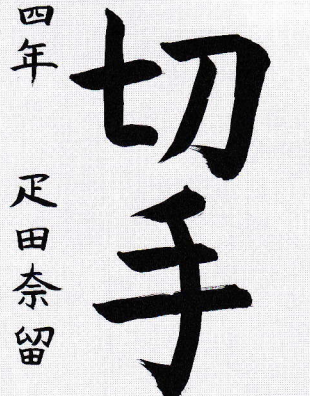 切手
四年 疋田奈留